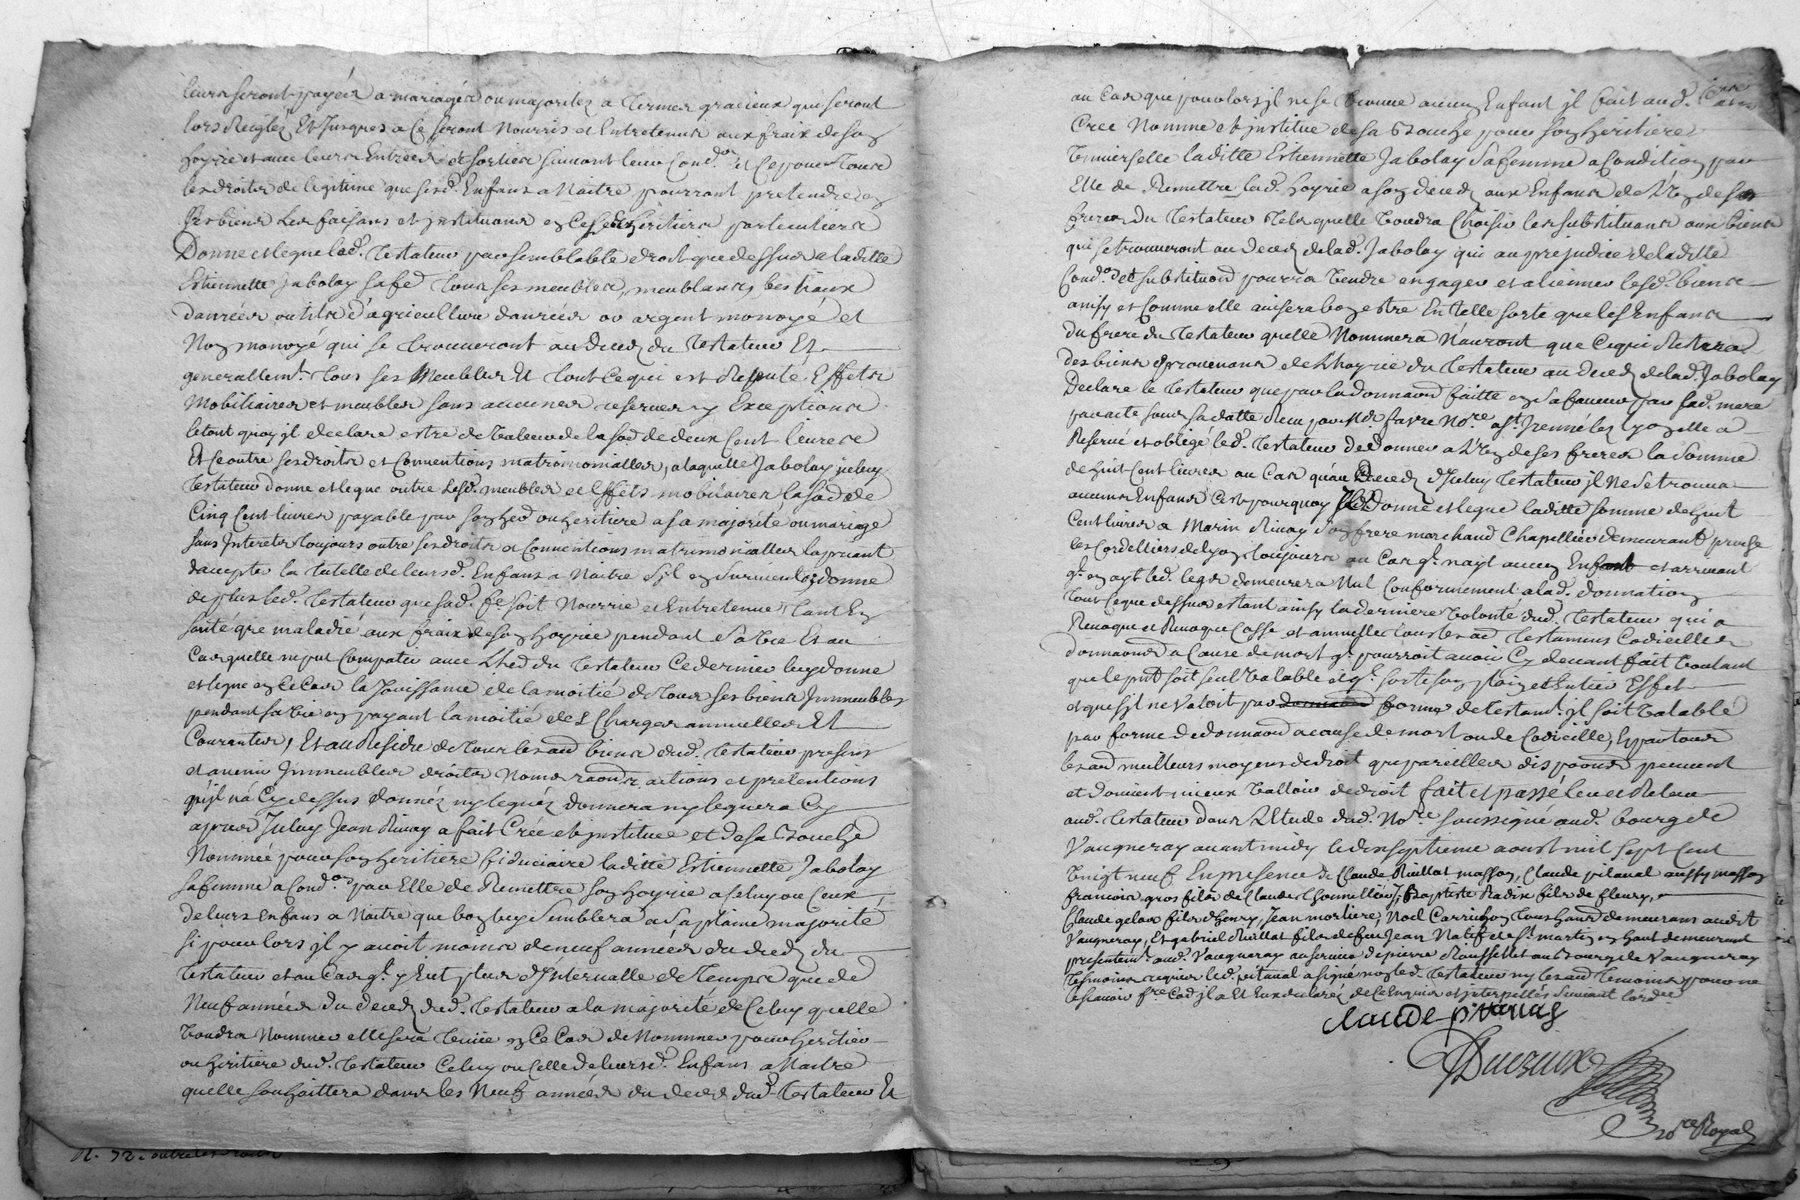 leurs seront payées a mariages ou majoritez a termes gracieux que seront
lors Reiglez Et Jusques a ce seront Nourris et Entretenus aux fraix de son
hoyrie et avec leurs Entrées et sorties suivant leur Cond.on et ce pour tous
les droits de legitime que sesd. Enfans a Naitre pourront pretendre en
ses biens Les faisans et instituans en ce ses heritiers particuliers
Donne et legue led. Testateur par semblable droit que dessus a laditte
Estiennette Jabolay sa fe. tous ses meubles, meublants, bestiaux
danrées outils d'agriculture danrées ou argent monoyé et
Non monoyé qui se trouveront au deces du Testateur Et
generallem.t tous ses Meubles Et tout ce qui est Reputé Effets
Mobiliaires et meubles sans aucunes reserves ny Exceptions
letout quoy il declare estre de valeur de la so.e de deux Cent livres
Et ce outre ses droits et Conventions matrimonialles, a laquelle Jabolay iceluy
Testateur donne et legue outre lesd. meubles et Effets mobiliaires la so.e de
Cinq Cent livres payable par son hed ou heritiere a sa majorité ou mariage
sans Interets toujours outre ses droits et Conventions matrimonialles la priant
daccepter la tutelle de leursd. Enfans a Naitre s'il en survient, donne
de plus led. Testateur que sad. fe soit Nourrie et Entretenue tant En
santé que maladie aux fraix de son hoyrie pendant sa vie Et au
Cas quelle ne put Compatir avec Lhed du Testateur ce dernier luy donne
et legue en ce Cas la Jouissance de la moitié de tous ses biens Immeubles
pendant sa vie en payant la moitié des Charges annuelles Et
Courantes, Et au Residu de tous les aud biens dud. Testateur presens
et avenir Immeubles droits Noms raons actions et pretentions
qu'il n'a Cy dessus donnéz ny leguéz donnera ny leguera Cy
apres Iceluy Jean Rivay a fait Crée et instituee et de sa Bouche
Nommée pour son heritiere fiduciaire laditte Estiennette Jabolay
sa femme a Cond.on par Elle de Remettre son hoyrie a Celuy ou Ceux
de leurs Enfans a Naitre que bon luy Semblera a sa plaine majorité
si pour lors il y avoit moins de neuf années du deces du
Testateur et au Cas q.l y Eut plus d'Intervalle de temps que de
Neuf années du deces dud. Testateur a la majorité de Celuy quelle
voudra Nommer elle sera tenüe en Ce Cas de Nommer pour heritier
ou heritiere dud. Testateur Celuy ou Celle de leursd. Enfans a Naitre
quelle souhaittera dans les Neuf années du deces dud. Testateur Et
au Cas que pour lors il ne se trouve aucun Enfant il fait aud.
Crée Nomme et institue de sa Bouche pour son heritiere
Universelle laditte Estiennette Jabolay sa femme a Condition par
Elle de Remettre lad. hoyrie a son deces aux Enfans de l'un de ses
freres du Testateur tels quelle voudra Choisir les substituans aux biens
qui se trouveront au deces de lad. Jabolay qui au prejudice de laditte
Cond.on de substituon pourra vendre engager et aliener lesd. biens
ainsy et Comme elle avisera bon estre En telle sorte que les Enfans
du frere du Testateur quelle Nommera N'auront que Ce qui Restera
des biens provenans de Lhoyrie du Testateur au deces de lad. Jabolay
Declare le Testateur que par la donnaon faitte en sa faveur par sad. mere
par acte sous sa datte Receu par M.e favre No.re a S.t Irenné les Lyon elle a
Reservé et obligé led. Testateur de donner a l'un de ses freres la somme
de huit Cent livres au Cas qu'au deces d'Iceluy Testateur il ne se trouva
aucuns Enfans C'est pourquoy Il donne et legue laditte somme de huit
Cent livres a Marin Rivay son frere marchand Chapellier demeurant proche
les Cordelliers de Lyon toujours au Cas q.l nayt aucun Enfant et arrivant
q.l en ayt led. legs demeurera Nul Conformement a lad. donnation
tout ce que dessus estant ainsy la derniere volonté dud. Testateur qui a
Revoqué et Revoque Casse et annulle tous les aud Testamens Codicilles
donnaons a Cause de mort q.l pourroit avoir Cy devant fait voulant
que le pnt soit seul valable et q.l sorte son plein et Entier Effet
et que s'il ne valoit par donnaon forme de testam.t il soit valable
par forme de donnaon a cause de mort ou de Codicille, Et par tous
les aud meilleurs moyens de droit que pareilles dispoons peuvent
et doivent mieux valloir de droit fait et passé leu et Releu
aud. Testateur dans L'Etude dud. No.re soussigné aud. bourg de
Vaugneray avant midy le dixseptieme aoust mil sept Cent
vingt neuf En presence de Claude Ruillat masson, Claude pitaval aussy masson
francois gros fils de Claude Baptiste Radix fils de fleury,
Claude gelas fils d'henry, Jean mortiere, Noel Carrichon tous habitans demeurans aud.t
Vaugneray, Et gabriel Ruillat fils de feu Jean Natif de S.t martin en haut demeurant
presentem.t aud. Vaugneray au service de pierre Rousselet au Bourg de Vaugneray
temoins requis led. pitaval a signé non led. Testateur ny les aud temoins pour ne
le scavoir f.re Cod il a Et Eux declaréz de ce Enquis et interpellés suivant l'ord.ce
claude pitaval
Ducreux
No.re Royal